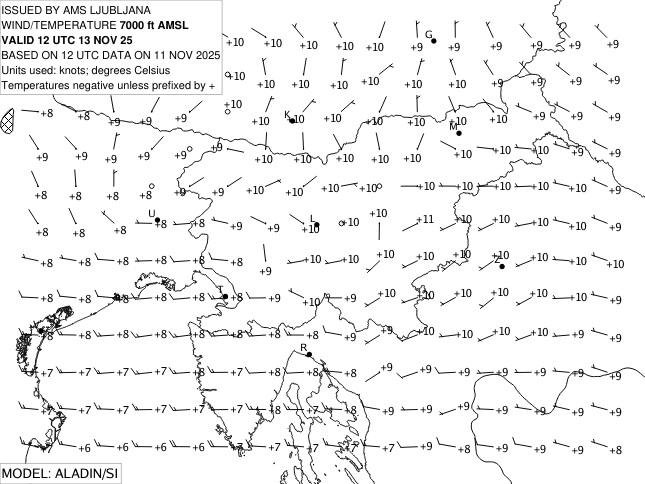 ISSUED BY AMS LJUBLJANA
WIND/TEMPERATURE 7000 ft AMSL
VALID 12 UTC 13 NOV 25
BASED ON 12 UTC DATA ON 11 NOV 2025
Units used: knots; degrees Celsius
Temperatures negative unless prefixed by +
G
+10 +10 +10 +10 +9 +9 +9 +9 +9 +9
+10 +10 +10 +10 +10 +10 +10 +9 +9
+10
K
M
+8 +8 +9 +9 +9 +10 +10 +10 +10 +10 +10 +10 +9 +9
+9 +9 +9 +9 +9 +10 +10 +10 +10 +10 +10 +10 +9 +9
+8 +8 +8 +9 +9 +10 +10 +10 +10 +10 +10 +10 +10 +9
U
L
+8 +8 +8 +8 +8 +9 +9 +10 +10 +10 +11 +10 +10 +10 +10 +9
Z
+8 +8 +8 +8 +8 +8 +9 +10 +10 +10 +10 +10 +10 +10 +10
T
+8 +8 +8 +8 +8 +8 +9 +10 +10 +10 +10 +10 +10 +10 +9
+8 +8 +8 +8 +8 +8 +8 +8 +9 +9 +10 +10 +10 +10 +9
R
+7 +7 +7 +7 +7 +8 +8 +8 +9 +9 +9 +9 +9 +9 +9
+7 +7 +7 +7 +7 +7 +8 +7 +8 +9 +9 +9 +9 +9 +9 +9
+6 +6 +6 +6 +6 +7 +7 +7 +7 +9 +8 +9 +9 +9 +8
MODEL: ALADIN/SI